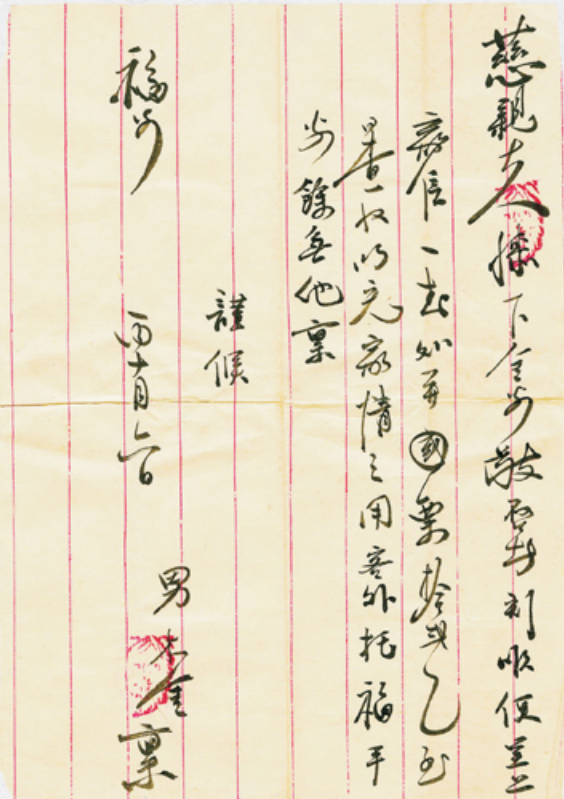 慈親大人膝下金安敬稟者刻順便呈上
家信一封外并國票拾弍元到
查收以充家情之用客外托福平
安餘無他稟
謹候
福安
四月六日
男 金稟